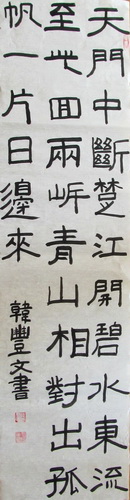 天門中斷楚江開碧水東流
至此回兩岸青山相對出孤
帆一片日邊來
韓豐文書